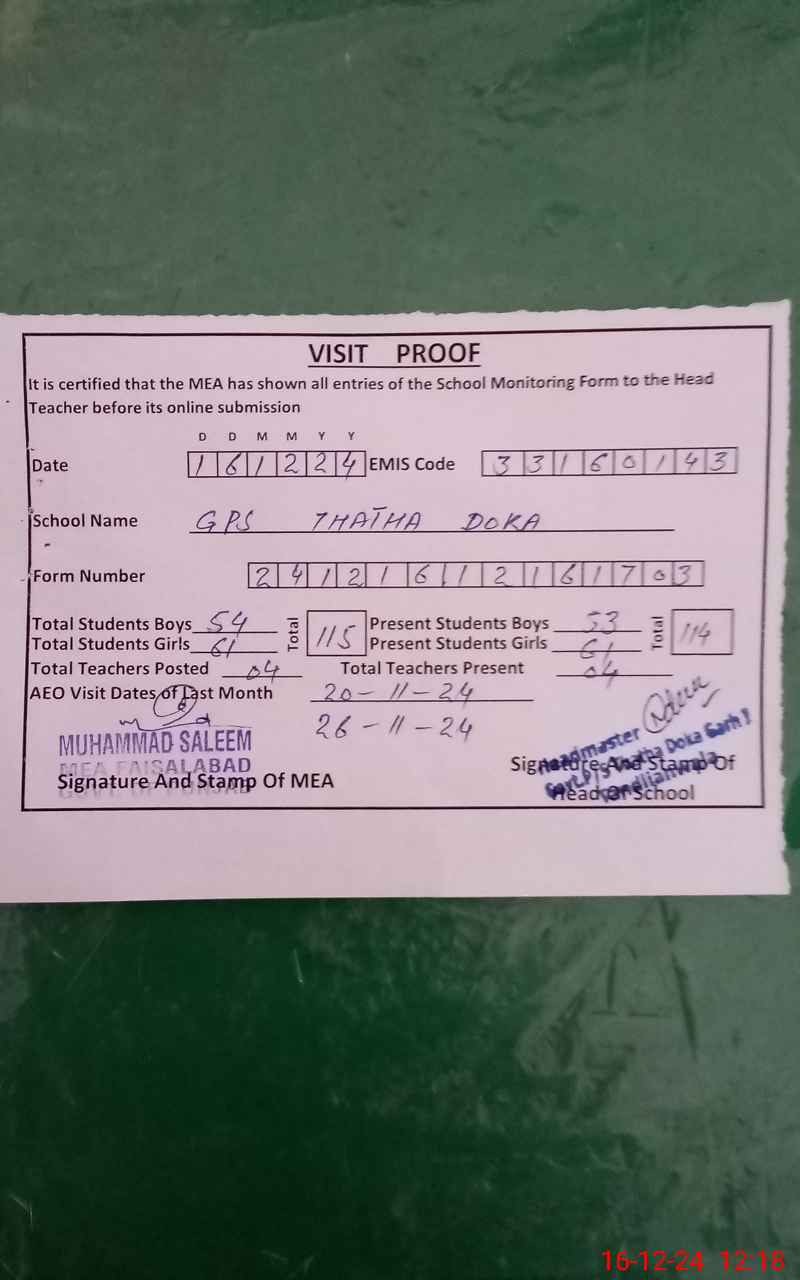 VISIT PROOF
It is certified that the MEA has shown all entries of the School Monitoring Form to the Head
Teacher before its online submission
D D M M Y Y
Date 1 6 1 2 2 4 EMIS Code 3 3 1 6 0 1 4 3
School Name GPS THATHA DOKA
Form Number 2 4 1 2 1 6 1 2 1 6 1 7 0 3
Total Students Boys 54 Total 115 Present Students Boys 53 Total 114
Total Students Girls 61 Present Students Girls 61
Total Teachers Posted 04 Total Teachers Present 04
AEO Visit Dates of Last Month 20-11-24
26-11-24
MUHAMMAD SALEEM
MEA FAISALABAD
GOVT. OF PUNJAB
Signature And Stamp Of MEA
Headmaster
Govt. P/S Thatha Doka Garh
Signature And Stamp Of
Head Of School
16-12-24 12:18